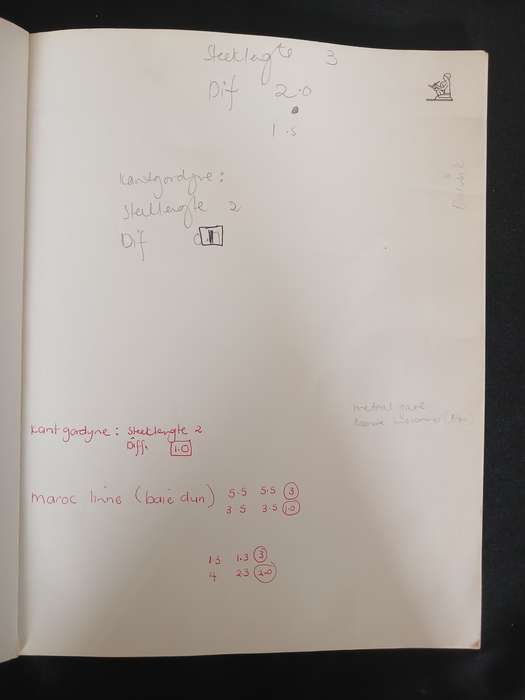 Steeklengte 3
Dif 2.0
1.5
Kantgordyne:
Steeklengte 2
Dif
Kantgordyne: Steeklengte 2
Diff. 1.0
maroc linne (baie dun) 5.5 5.5 3
3.5 3.5 1.0
1.5 1.3 3
4 2.3 2.0